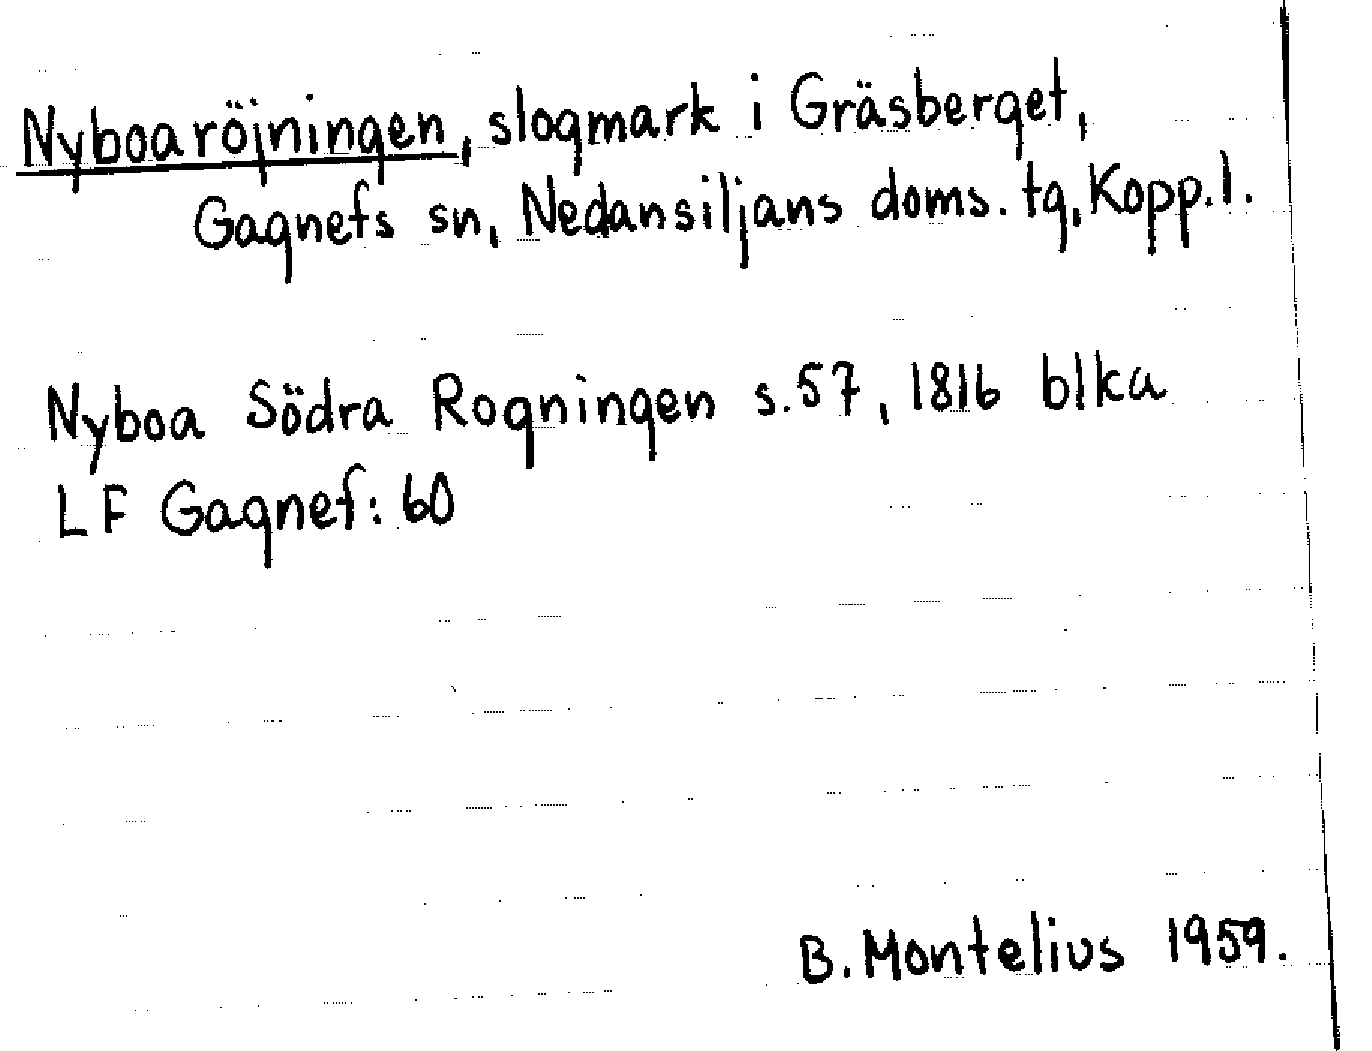 Nyboaröjningen, slogmark i Gräsberget,
Gagnefs sn, Nedansiljans doms. tg, Kopp. l.
Nyboa Södra Rogningen s. 57, 1816 blka
LF Gagnef: 60
B. Montelius 1959.